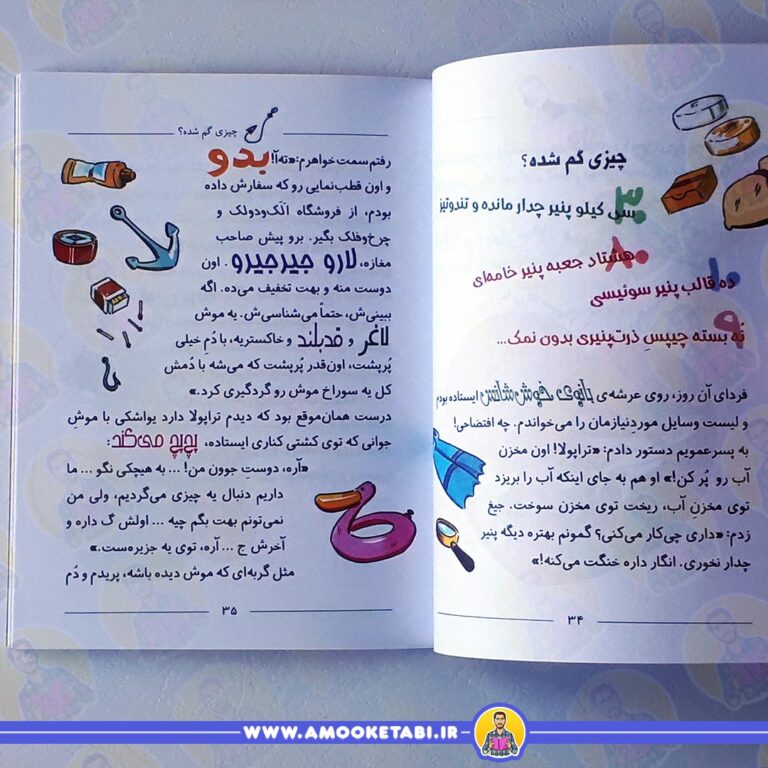 چیزی گم شده؟
۳۰
سی کیلو پنیر چدار مانده و تندوتیز
۸۰
هشتاد جعبه پنیر خامه‌ای
۱۰
ده قالب پنیر سوئیسی
۹
نُه بسته چیپسِ ذرت‌پنیری بدون نمک...
فردای آن روز، روی عرشه‌ی بانوی خوش‌شانس ایستاده بودم
و لیست وسایل موردنیازمان را می‌خواندم. چه افتضاحی!
به پسرعمویم دستور دادم: «تراپولا! اون مخزن
آب رو پُر کن!» او هم به جای اینکه آب را بریزد
توی مخزنِ آب، ریخت توی مخزن سوخت. جیغ
زدم: «داری چی‌کار می‌کنی؟ گمونم بهتره دیگه پنیر
چدار نخوری. انگار داره خنگت می‌کنه!»
۳۴
چیزی گم شده؟
رفتم سمت خواهرم: «ته‌آ! بدو
و اون قطب‌نمایی رو که سفارش داده
بودم، از فروشگاه الَک‌ودولک و
چرخ‌وفلک بگیر. برو پیش صاحب
مغازه، لارو جیرجیرو. اون
دوست منه و بهت تخفیف می‌ده. اگه
ببینی‌ش، حتماً می‌شناسی‌ش. یه موش
لاغر و قدبلند و خاکستریه، با دُمِ خیلی
پُرپشت، اون‌قدر پُرپشت که می‌شه با دُمش
کل یه سوراخ موش رو گردگیری کرد.»
درست همان‌موقع بود که دیدم تراپولا دارد یواشکی با موشِ
جوانی که توی کشتی کناری ایستاده، پچ‌پچ می‌کند:
«آره، دوستِ جوون من! ... به هیچکی نگو ... ما
داریم دنبال یه چیزی می‌گردیم، ولی من
نمی‌تونم بهت بگم چیه ... اولش گ داره و
آخرش ج ... آره، توی یه جزیره‌ست.»
مثل گربه‌ای که موش دیده باشه، پریدم و دُم
۳۵
WWW.AMOOKETABI.IR